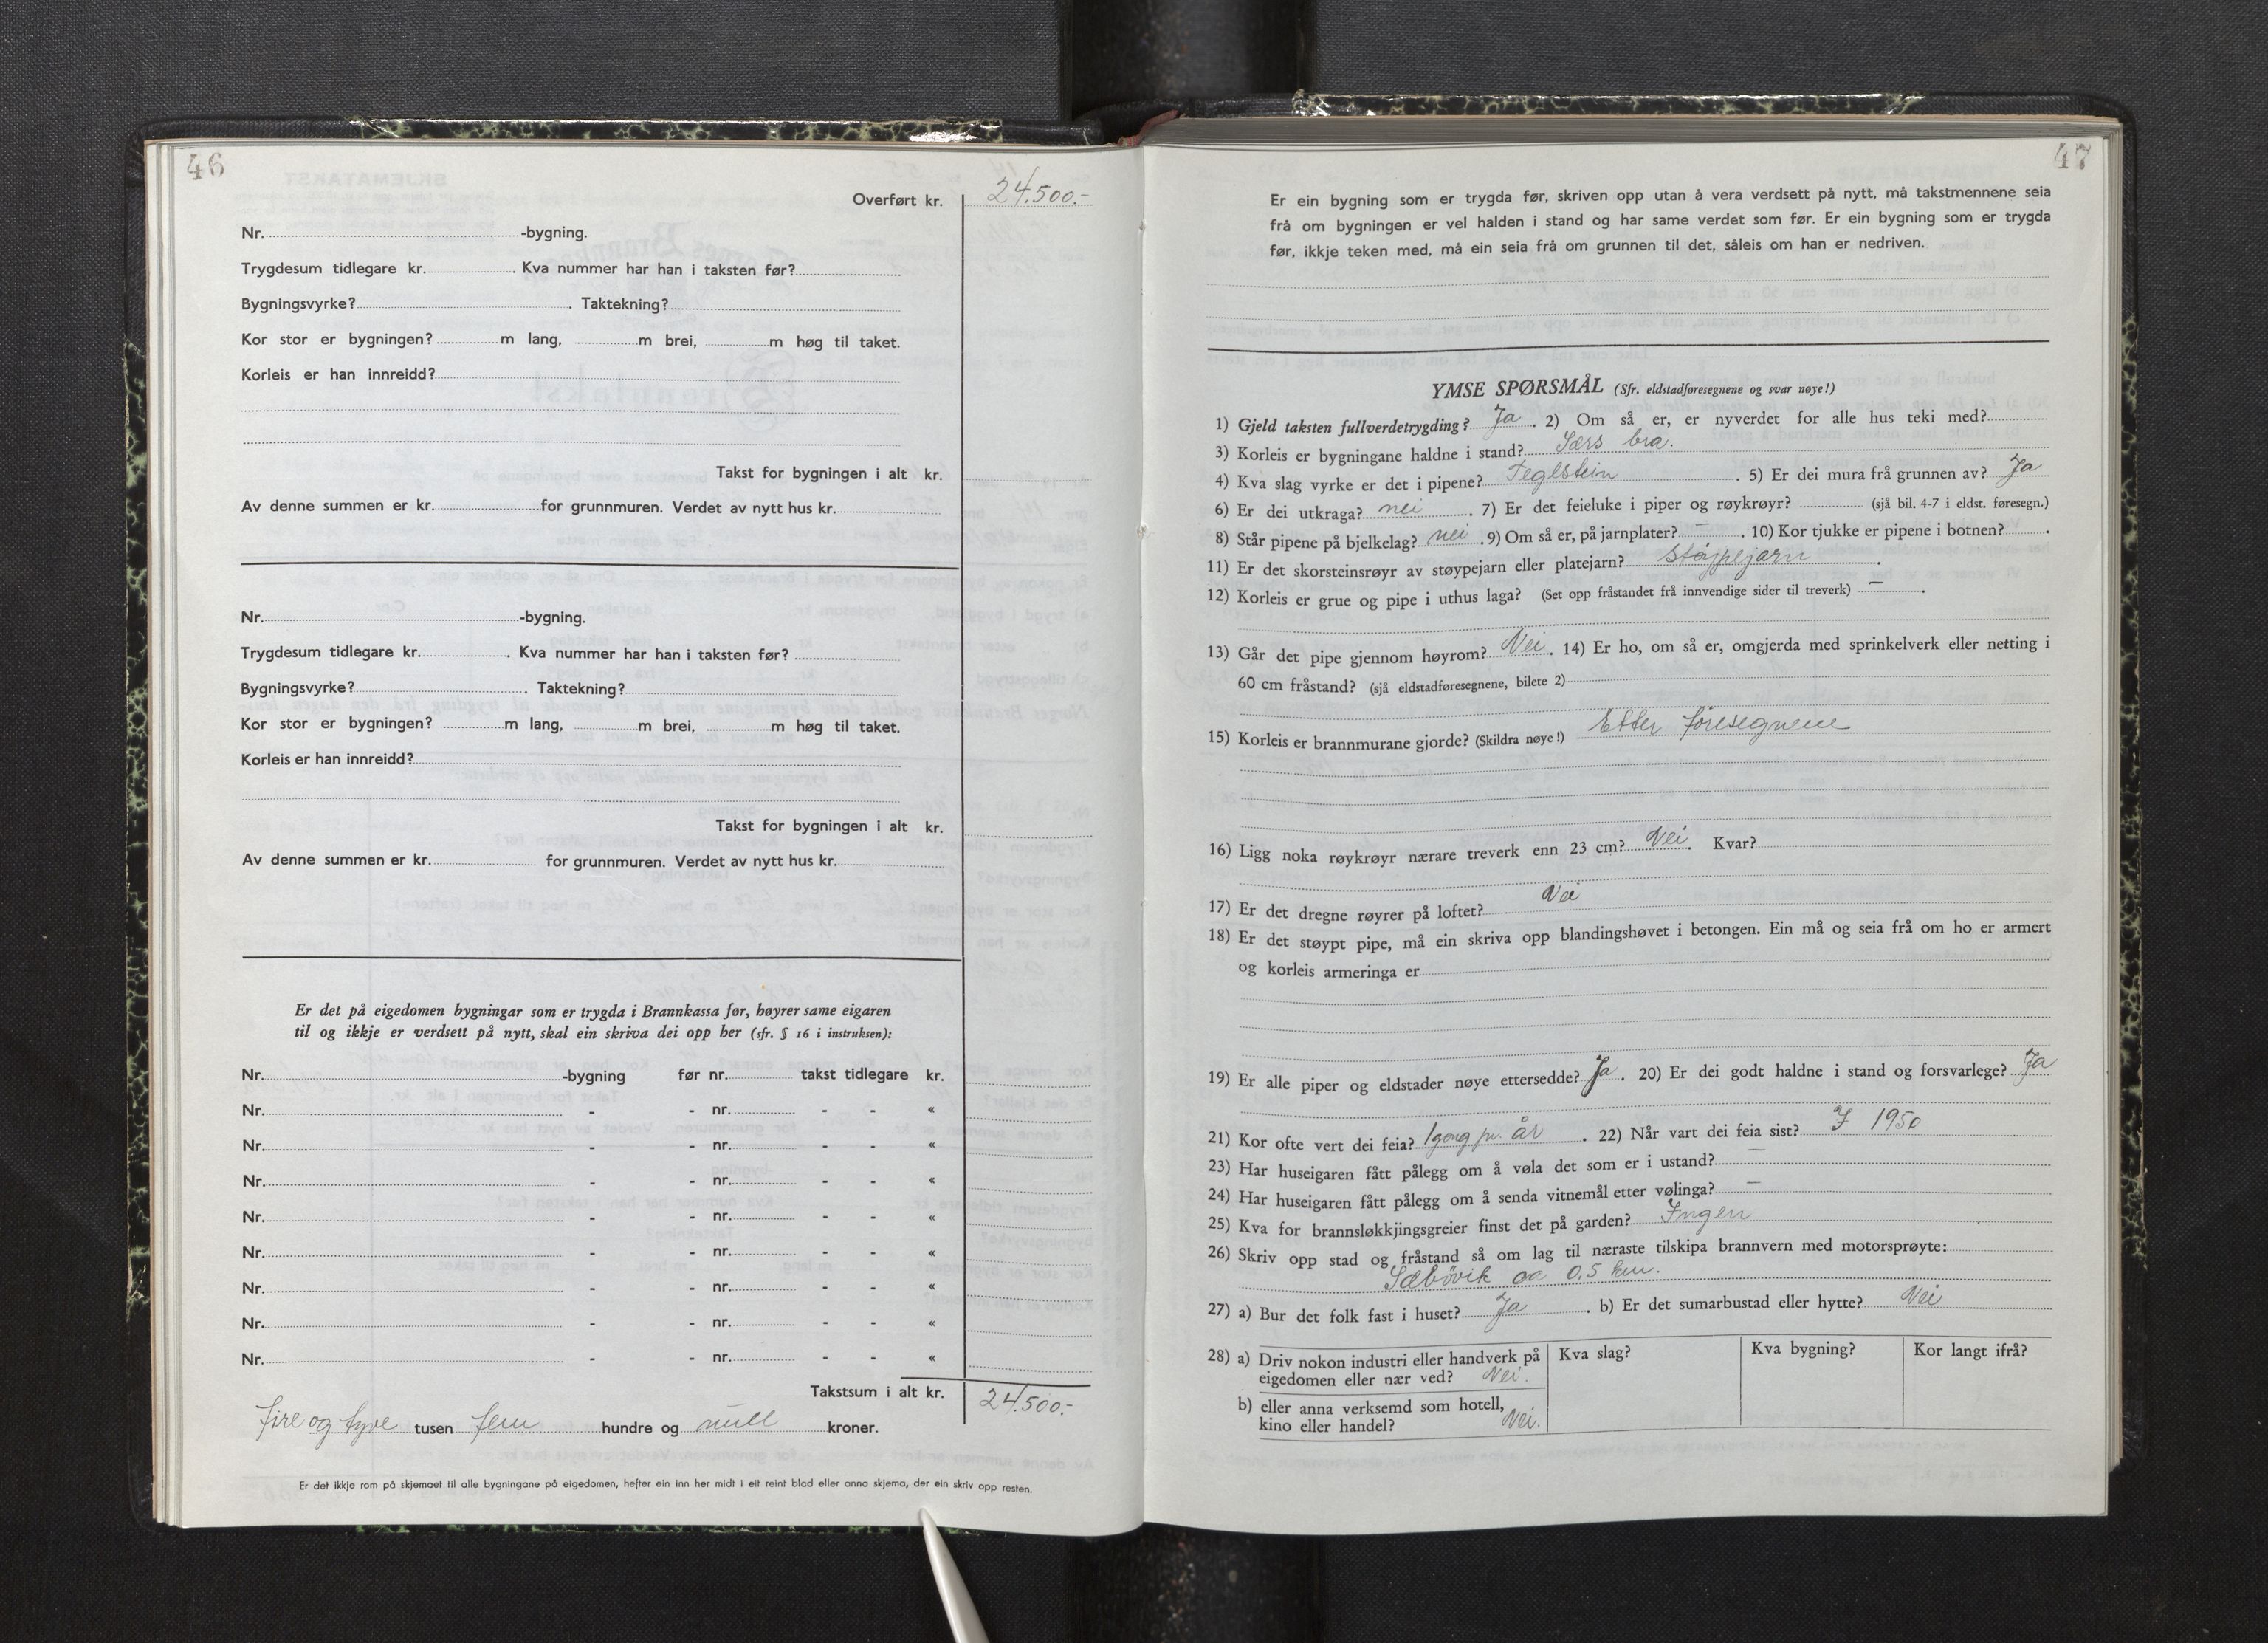 46
Overført kr. 24.500.-
Nr. -bygning.
Trygdesum tidlegare kr. . Kva nummer har han i taksten før?
Bygningsvyrke? . Taktekning?
Kor stor er bygningen? m lang, m brei, m høg til taket.
Korleis er han innreidd?
Takst for bygningen i alt kr.
Av denne summen er kr. for grunnmuren. Verdet av nytt hus kr.
Nr. -bygning.
Trygdesum tidlegare kr. . Kva nummer har han i taksten før?
Bygningsvyrke? . Taktekning?
Kor stor er bygningen? m lang, m brei, m høg til taket.
Korleis er han innreidd?
Takst for bygningen i alt kr.
Av denne summen er kr. for grunnmuren. Verdet av nytt hus kr.
Er det på eigedomen bygningar som er trygda i Brannkassa før, høyrer same eigaren
til og ikkje er verdsett på nytt, skal ein skriva dei opp her (sfr. § 16 i instruksen):
Nr. -bygning før nr. takst tidlegare kr.
Nr. - - nr. - - «
Nr. - - nr. - - «
Nr. - - nr. - - «
Nr. - - nr. - - «
Nr. - - nr. - - «
Nr. - - nr. - - «
Nr. - - nr. - - «
Nr. - - nr. - - «
Takstsum i alt kr. 24.500.-
fire og tyve tusen fem hundre og null kroner.
Er det ikkje rom på skjemaet til alle bygningane på eigedomen, hefter ein inn her midt i eit reint blad eller anna skjema, der ein skriv opp resten.
47
Er ein bygning som er trygda før, skriven opp utan å vera verdsett på nytt, må takstmennene seia
frå om bygningen er vel halden i stand og har same verdet som før. Er ein bygning som er trygda
før, ikkje teken med, må ein seia frå om grunnen til det, såleis om han er nedriven.
YMSE SPØRSMÅL (Sfr. eldstadføresegnene og svar nøye!)
1) Gjeld taksten fullverdetrygding? Ja . 2) Om så er, er nyverdet for alle hus teki med?
3) Korleis er bygningane haldne i stand? Særs bra.
4) Kva slag vyrke er det i pipene? Teglstein . 5) Er dei mura frå grunnen av? Ja
6) Er dei utkraga? nei . 7) Er det feieluke i piper og røykrøyr? (sjå bil. 4-7 i eldst. føresegn.)
8) Står pipene på bjelkelag? nei . 9) Om så er, på jarnplater? — . 10) Kor tjukke er pipene i botnen? .
11) Er det skorsteinsrøyr av støypejarn eller platejarn? støypejarn .
12) Korleis er grue og pipe i uthus laga? (Set opp fråstandet frå innvendige sider til treverk) — .
13) Går det pipe gjennom høyrom? Nei . 14) Er ho, om så er, omgjerda med sprinkelverk eller netting i
60 cm fråstand? (sjå eldstadføresegnene, bilete 2)
15) Korleis er brannmurane gjorde? (Skildra nøye!) Etter føresegnene
16) Ligg noka røykrøyr nærare treverk enn 23 cm? Nei. Kvar?
17) Er det dregne røyrer på loftet? Nei
18) Er det støypt pipe, må ein skriva opp blandingshøvet i betongen. Ein må og seia frå om ho er armert
og korleis armeringa er
19) Er alle piper og eldstader nøye ettersedde? Ja . 20) Er dei godt haldne i stand og forsvarlege? Ja
21) Kor ofte vert dei feia? 1 gong pr. år . 22) Når vart dei feia sist? I 1950
23) Har huseigaren fått pålegg om å vøla det som er i ustand? —
24) Har huseigaren fått pålegg om å senda vitnemål etter vølinga? —
25) Kva for brannsløkkjingsgreier finst det på garden? Ingen
26) Skriv opp stad og fråstand så om lag til næraste tilskipa brannvern med motorsprøyte:
Sæbövik ca 0,5 km.
27) a) Bur det folk fast i huset? Ja . b) Er det sumarbustad eller hytte? Nei
28) a) Driv nokon industri eller handverk på Kva slag? Kva bygning? Kor langt ifrå?
eigedomen eller nær ved? Nei.
b) eller anna verksemd som hotell,
kino eller handel? Nei.